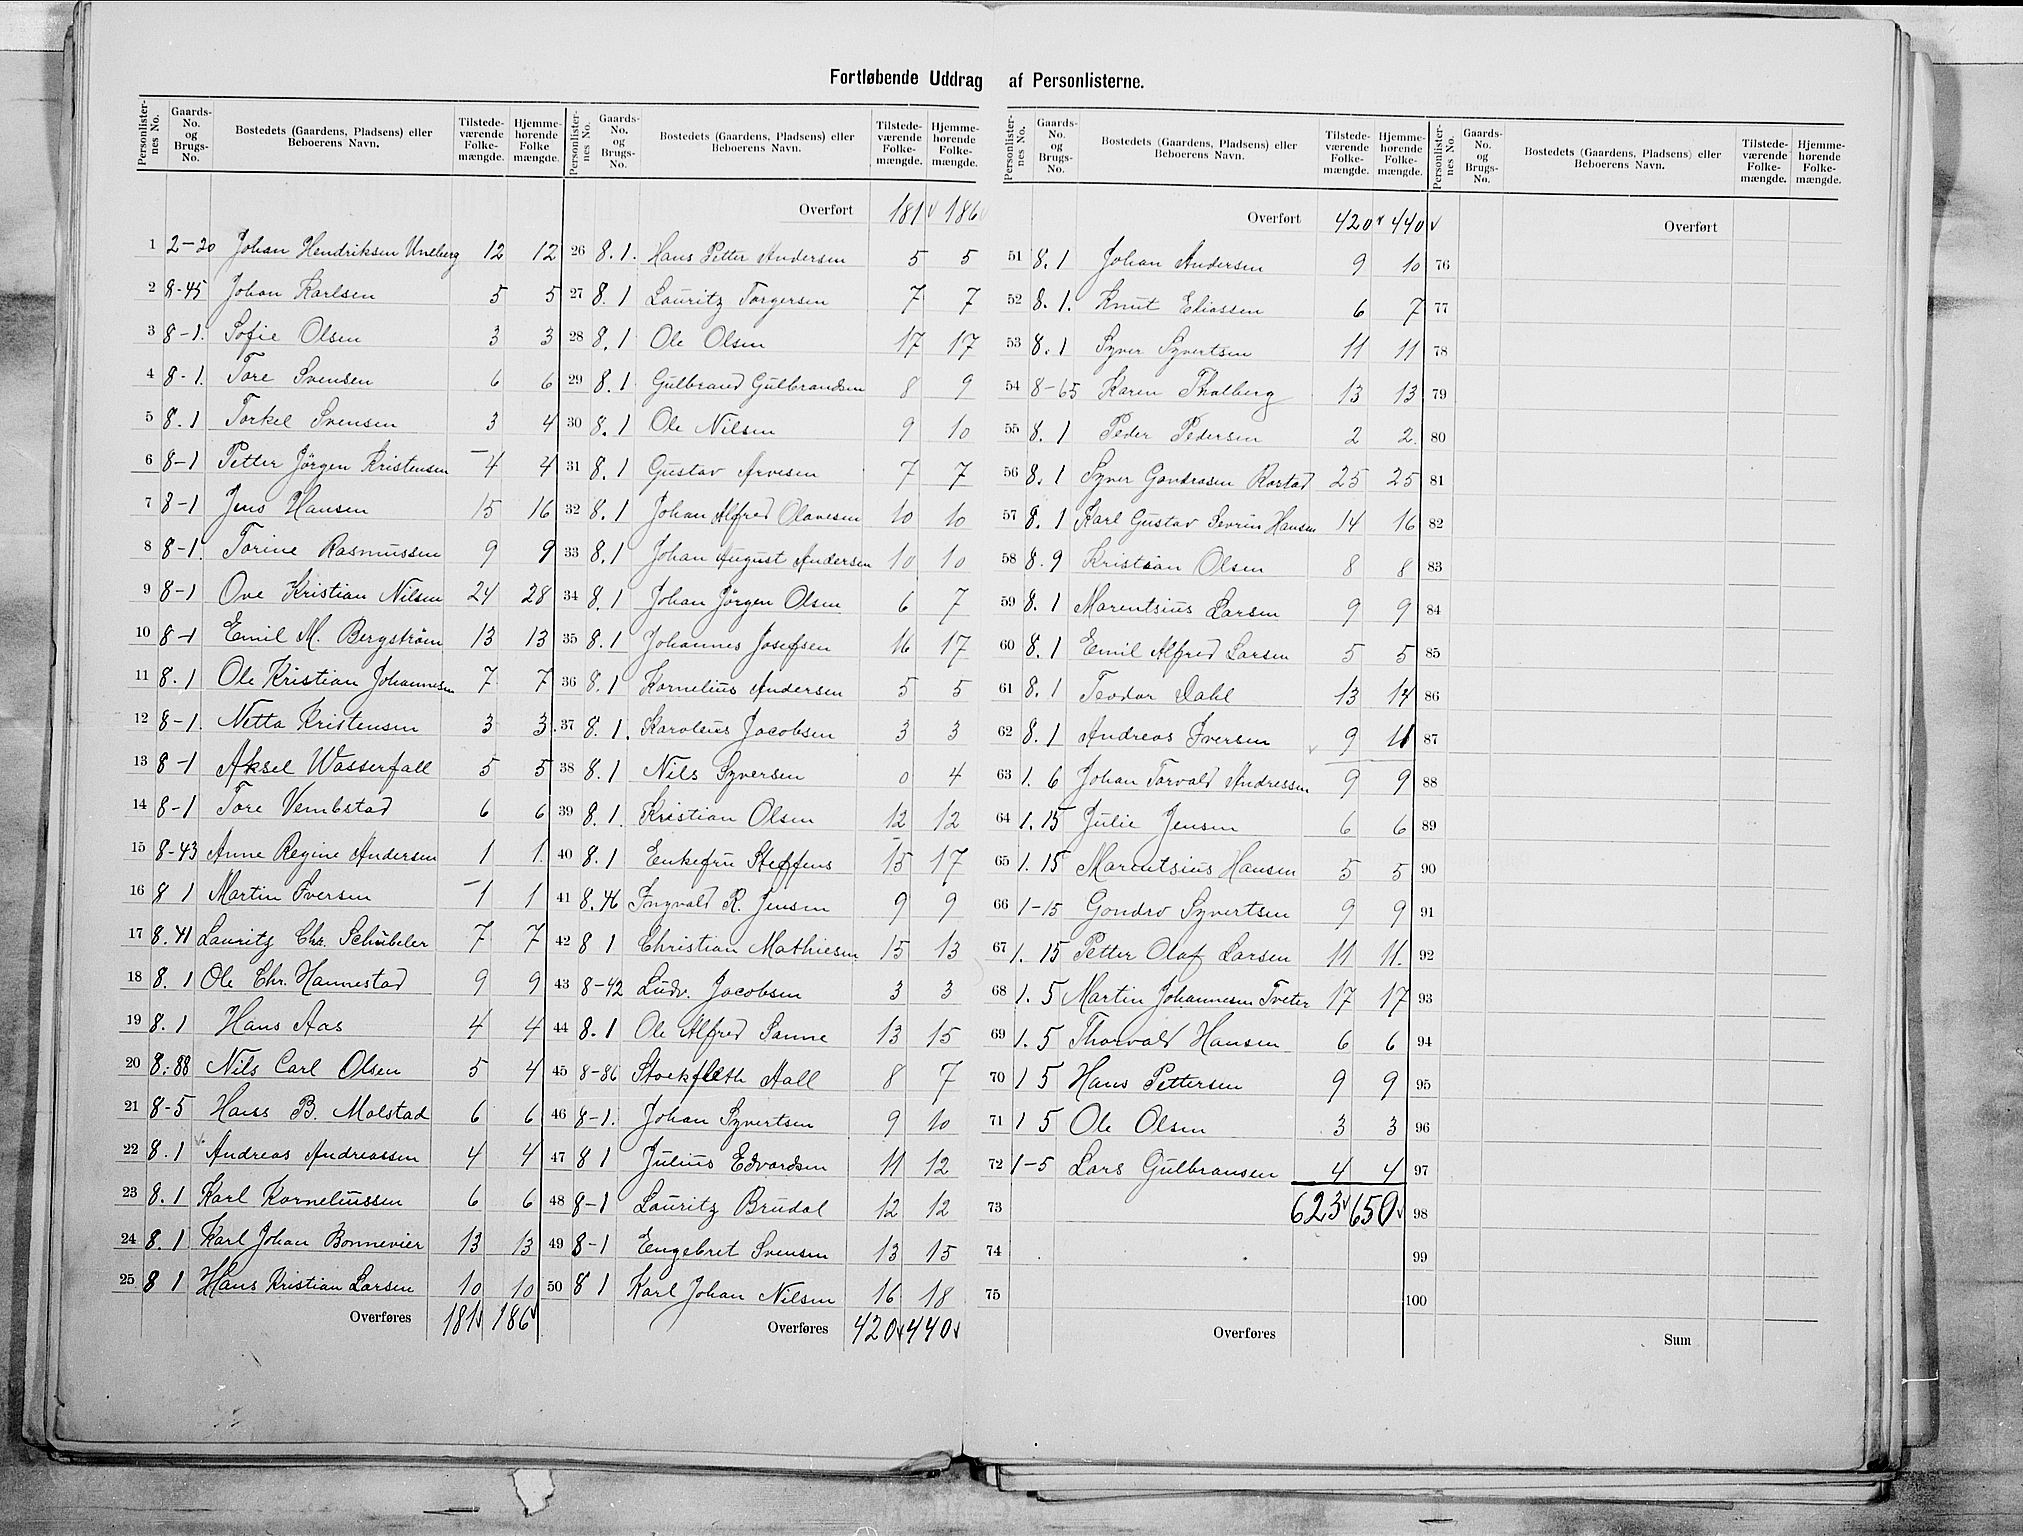 Fortløbende Uddrag af Personlisterne.
Personlisternes No. | Gaards-No. og Brugs-No. | Bostedets (Gaardens, Pladsens) eller Beboerens Navn. | Tilstedeværende Folkemængde. | Hjemmehørende Folkemængde.
1 2-20 Johan Hendriksen 12 12
2 8-45 Johan Karlsen 5 5
3 8-1. Sofie Olsen 3 3
4 8-1. Tore Svensen 6 6
5 8.1 Torkel Svensen 3 4
6 8-1 Petter Jörgen Kristensen 4 4
7 8-1 Jens Hansen 15 16
8 8-1. Torine Rasmussen 9 9
9 8-1 Ove Kristian Nilsen 24 28
10 8-1 Emil M. Bergström 13 13
11 8.1 Ole Kristian Johannesen 7 7
12 8-1. Netta Kristensen 3 3
13 8-1 Aksel Wasserfall 5 5
14 8-1 Tore Vembstad 6 6
15 8-43 Anne Regine Andersen 1 1
16 8 1 Martin Iversen 1 1
17 8.41 Lauritz Chr. Schübeler 7 7
18 8.1 Ole Chr. Hannestad 9 9
19 8.1 Hans Aas 4 4
20 8:88 Nils Carl Olsen 5 4
21 8-5 Hans B. Molstad 6 6
22 8.1 Andreas Andreassen 4 4
23 8.1 Karl Korneliussen 6 6
24 8.1 Karl Johan Bonnevier 13 13
25 8 1 Hans Kristian Larsen 10 10
Overføres 181 186
Personlisternes No. | Gaards-No. og Brugs-No. | Bostedets (Gaardens, Pladsens) eller Beboerens Navn. | Tilstedeværende Folkemængde. | Hjemmehørende Folkemængde.
Overført 181 186
26 8.1. Hans Petter Andersen 5 5
27 8.1 Lauritz Torgersen 7 7
28 8.1 Ole Olsen 17 17
29 8.1 Gulbrand Gulbrandsen 8 9
30 8.1 Ole Nilsen 9 10
31 8.1 Gustav Arvesen 7 7
32 8.1 Johan Alfred Olavesen 10 10
33 8.1 Johan August Andersen 10 10
34 8.1 Johan Jörgen Olsen 6 7
35 8.1 Johannes Josefsen 16 17
36 8.1 Kornelius Andersen 5 5
37 8.1. Karolius Jacobsen 3 3
38 8.1 Nils Syversen 0 4
39 8.1. Kristian Olsen 12 12
40 8.1 Enkefru Steffens 15 17
41 8.46 Ingvald R. Jensen 9 9
42 8 1 Christian Mathiesen 15 13
43 8-42 Ludv. Jacobsen 3 3
44 8.1 Ole Alfred Sanne 13 15
45 8-86 Stockfleth Hall 8 7
46 8-1. Johan Syvertsen 9 10
47 8 1 Julius Edvardsen 11 12
48 8-1 Lauritz Brudal 12 12
49 8-1 Engebret Svensen 13 15
50 8 1 Karl Johan Nilsen 16 18
Overføres 420 440
Personlisternes No. | Gaards-No. og Brugs-No. | Bostedets (Gaardens, Pladsens) eller Beboerens Navn. | Tilstedeværende Folkemængde. | Hjemmehørende Folkemængde.
Overført 420 440
51 8.1 Johan Andersen 9 10
52 8.1. Knut Eliassen 6 7
53 8.1 Syver Syvertsen 11 11
54 8-65 Karen Tholberg 13 13
55 8.1 Peder Pedersen 2 2
56 8.1 Syver Gondrosen Rostad 25 25
57 8.1 Karl Gustav Sevrin Hansen 14 16
58 8.9 Kristian Olsen 8 8
59 8.1 Marentsius Larsen 9 9
60 8.1 Emil Alfred Larsen 5 5
61 8.1 Teodor Dahl 13 14
62 8.1 Andreas Iversen 9 11
63 1.6 Johan Torvald Andressen 9 9
64 1.15 Julie Jensen 6 6
65 1.15 Marentsius Hansen 5 5
66 1-15 Gondro Syvertsen 9 9
67 1.15 Petter Olaf Larsen 11 11.
68 1.5 Martin Johannesen Tveter 17 17
69 1.5 Thorvald Hansen 6 6
70 1 5 Hans Pettersen 9 9
71 1 5 Ole Olsen 3 3
72 1-5 Lars Gulbransen 4 4
73 623 650
74
75
Overføres
Personlisternes No. | Gaards-No. og Brugs-No. | Bostedets (Gaardens, Pladsens) eller Beboerens Navn. | Tilstedeværende Folkemængde. | Hjemmehørende Folkemængde.
Overført
76
77
78
79
80
81
82
83
84
85
86
87
88
89
90
91
92
93
94
95
96
97
98
99
100
Sum